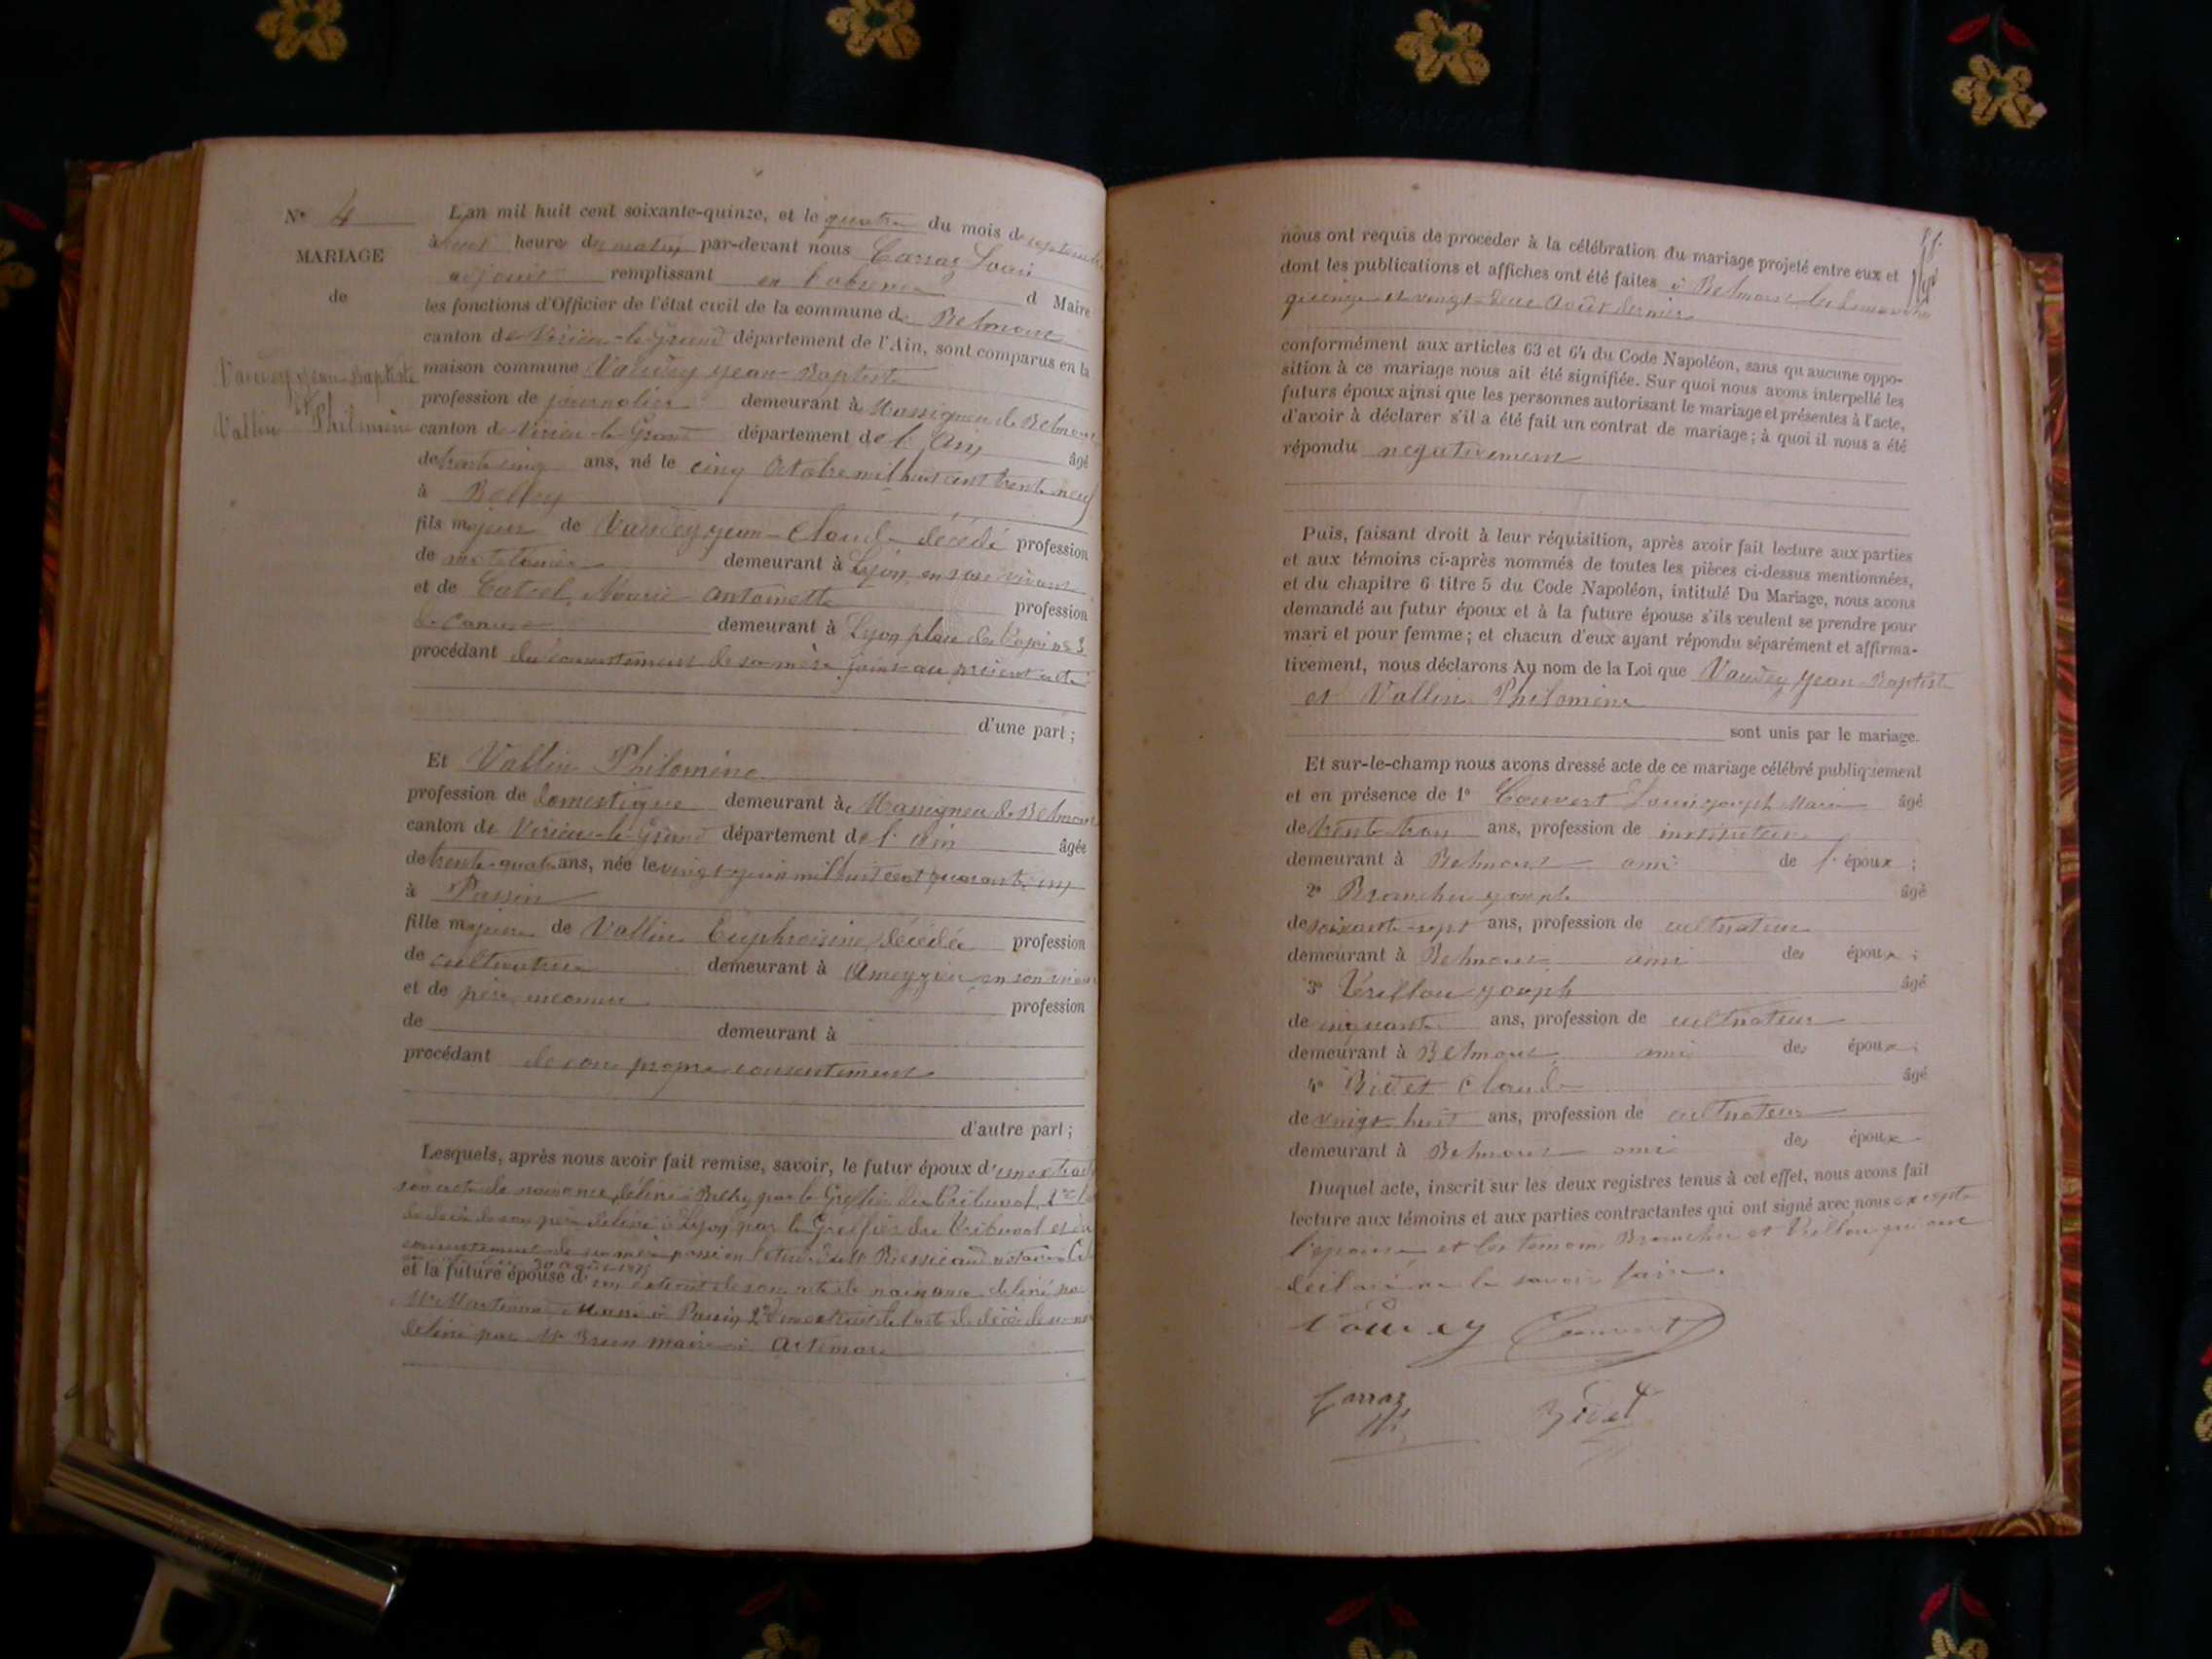 N° 4
MARIAGE
de
Vauvey Jean-Baptiste
et
Vallin Philomène
L'an mil huit cent soixante-quinze, et le quatre du mois de septembre
à heure du matin par-devant nous Carraz Louis
adjoint remplissant en l'absence d Maire
les fonctions d'Officier de l'état civil de la commune de Belmont
canton de Virieu-le-Grand département de l'Ain, sont comparus en la
maison commune Vauvey Jean-Baptiste
profession de journalier demeurant à Massignieu de Belmont
canton de Virieu-le-Grand département de l'Ain âgé
de trente cinq ans, né le cinq Octobre mil huit cent trente neuf
à Belley
fils majeur de Vauvey Jean-Claude décédé profession
de demeurant à Lyon en son vivant
et de Marie Antoinette profession
de demeurant à Lyon place des
procédant du consentement de sa mère joint au présent acte
d'une part ;
Et Vallin Philomène
profession de domestique demeurant à Massignieu de Belmont
canton de Virieu-le-Grand département de l'Ain âgée
de trente-quatre ans, née le vingt juin mil huit cent quarante un
à Passin
fille majeure de Vallin Euphroisine, décédée profession
de cultivatrice demeurant à Ameyzieu en son vivant
et de père inconnu profession
de demeurant à
procédant de son propre consentement
d'autre part ;
Lesquels, après nous avoir fait remise, savoir, le futur époux d'un extrait
son acte de naissance, délivré à Belley par le Greffier du Tribunal,
de décès de son père délivré à Lyon par le Greffier du Tribunal et du
consentement de sa mère passé en l'étude de Mr notaire
30 août 1875
et la future épouse d'un extrait de son acte de naissance délivré par
Mr Martinand Maire à Passin 2° un extrait de l'acte de décès de sa mère
délivré par Mr Brun maire à Artemare
nous ont requis de procéder à la célébration du mariage projeté entre eux et
dont les publications et affiches ont été faites à Belmont les dimanches
quinze et vingt-deux Août dernier
conformément aux articles 63 et 64 du Code Napoléon, sans qu'aucune oppo-
sition à ce mariage nous ait été signifiée. Sur quoi nous avons interpellé les
futurs époux ainsi que les personnes autorisant le mariage et présentes à l'acte,
d'avoir à déclarer s'il a été fait un contrat de mariage ; à quoi il nous a été
répondu négativement
Puis, faisant droit à leur réquisition, après avoir fait lecture aux parties
et aux témoins ci-après nommés de toutes les pièces ci-dessus mentionnées,
et du chapitre 6 titre 5 du Code Napoléon, intitulé Du Mariage, nous avons
demandé au futur époux et à la future épouse s'ils veulent se prendre pour
mari et pour femme ; et chacun d'eux ayant répondu séparément et affirma-
tivement, nous déclarons Au nom de la Loi que Vauvey Jean-Baptiste
et Vallin Philomène
sont unis par le mariage.
Et sur-le-champ nous avons dressé acte de ce mariage célébré publiquement
et en présence de 1° Convert Louis Joseph Marie âgé
de trente trois ans, profession de instituteur
demeurant à Belmont ami de l'époux ;
2° Joseph âgé
de soixante-sept ans, profession de cultivateur
demeurant à Belmont ami des époux ;
3° Vérillou Joseph âgé
de cinquante ans, profession de cultivateur
demeurant à Belmont ami des époux ;
4° Bidet Claude âgé
de vingt huit ans, profession de cultivateur
demeurant à Belmont ami des époux
Duquel acte, inscrit sur les deux registres tenus à cet effet, nous avons fait
lecture aux témoins et aux parties contractantes qui ont signé avec nous excepté
l'épouse et les témoins et Vérillou qui ont
déclaré ne le savoir faire.
Vouvey Convert
Carraz Bidet